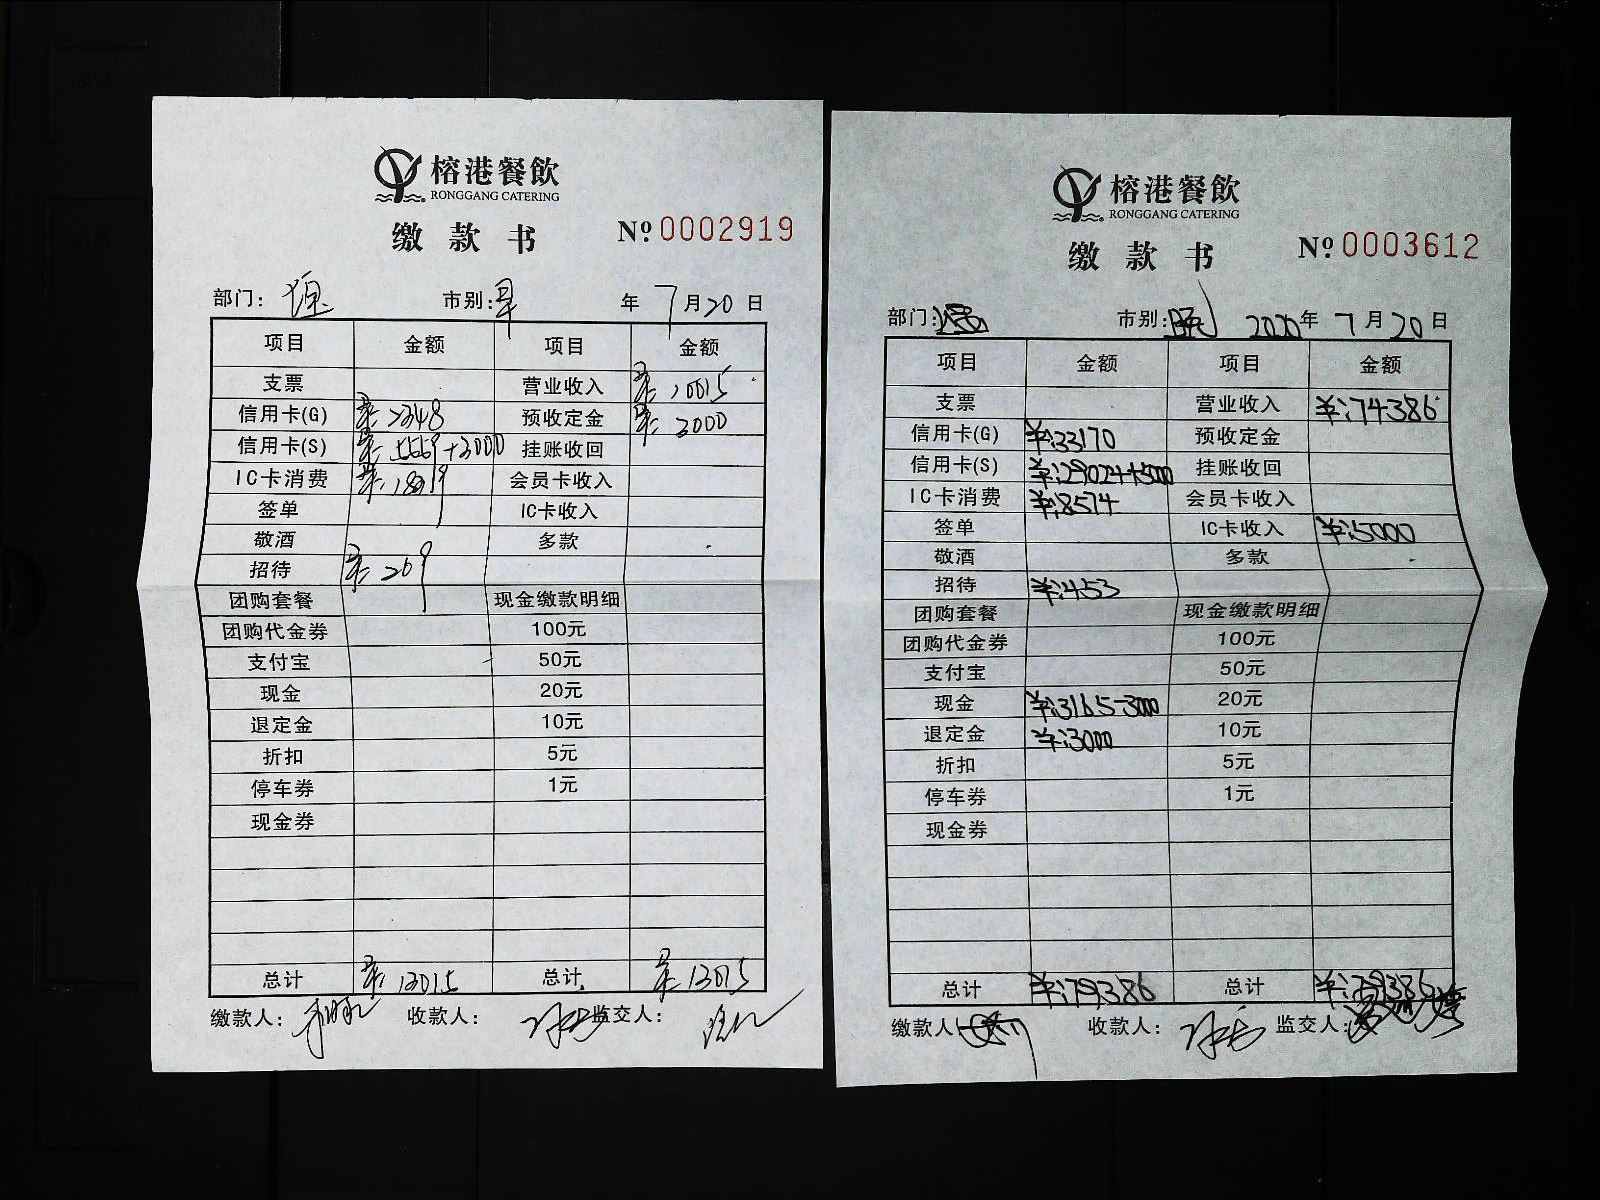 榕港餐飲
RONGGANG CATERING
缴款书 № 0002919
部门: 市别:早 年 7月20日
项目 金额 项目 金额
支票 营业收入 ¥:10015
信用卡(G) ¥:2348 预收定金 ¥:3000
信用卡(S) ¥:5569+3000 挂账收回
IC卡消费 ¥:1889 会员卡收入
签单 IC卡收入
敬酒 多款
招待 ¥:209
团购套餐 现金缴款明细
团购代金券 100元
支付宝 50元
现金 20元
退定金 10元
折扣 5元
停车券 1元
现金券
总计 ¥:13015 总计 ¥:13015
缴款人: 收款人: 监交人:
榕港餐飲
RONGGANG CATERING
缴款书 № 0003612
部门: 市别:晚 2020年 7月20日
项目 金额 项目 金额
支票 营业收入 ¥:74386
信用卡(G) ¥:33170 预收定金
信用卡(S) ¥:29024+5000 挂账收回
IC卡消费 ¥:8574 会员卡收入
签单 IC卡收入 ¥:5000
敬酒 多款
招待 ¥:453
团购套餐 现金缴款明细
团购代金券 100元
支付宝 50元
现金 ¥:3165-3000 20元
退定金 ¥:3000 10元
折扣 5元
停车券 1元
现金券
总计 ¥:79386 总计 ¥:79386
缴款人: 收款人: 监交人: